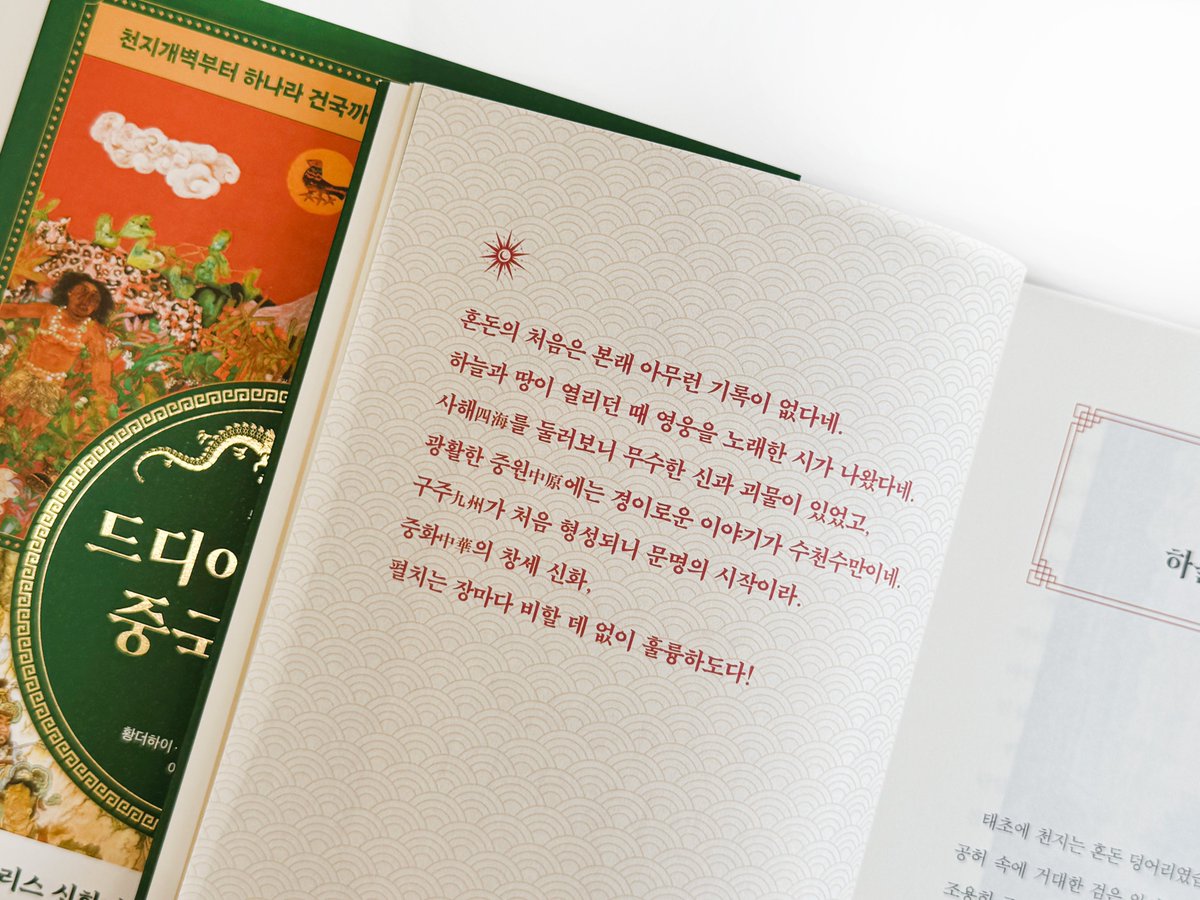 천지개벽부터 하나라 건국까
드디어
중국
황더하이
리스 신화
혼돈의 처음은 본래 아무런 기록이 없다네.
하늘과 땅이 열리던 때 영웅을 노래한 시가 나왔다네.
사해四海를 둘러보니 무수한 신과 괴물이 있었고,
광활한 중원中原에는 경이로운 이야기가 수천수만이네.
구주九州가 처음 형성되니 문명의 시작이라.
중화中華의 창세 신화,
펼치는 장마다 비할 데 없이 훌륭하도다!
태초에 천지는 혼돈 덩어리였
공허 속에 거대한 검은
조용히